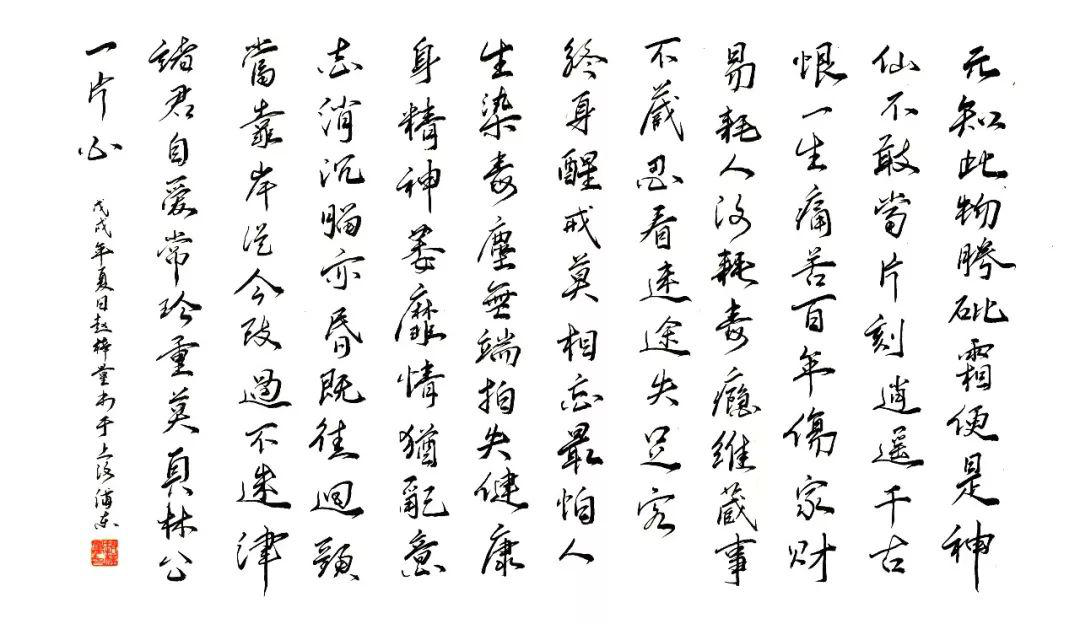 元知此物勝砒霜便是神
仙不敢當片刻逍遥千古
恨一生痛苦百年傷家財
易耗人没耗毒癮維藏事
不藏忍看迷途失足客
終身醒戒莫相忘最怕人
生染毒塵無端拍失健康
身精神萎靡情猶亂意
志消沉腦亦昏既往迴頭
當靠岸從今改過不迷津
諸君自愛常珍重莫負林公
一片心
戊戌年夏日趙梓童书于上海浦东